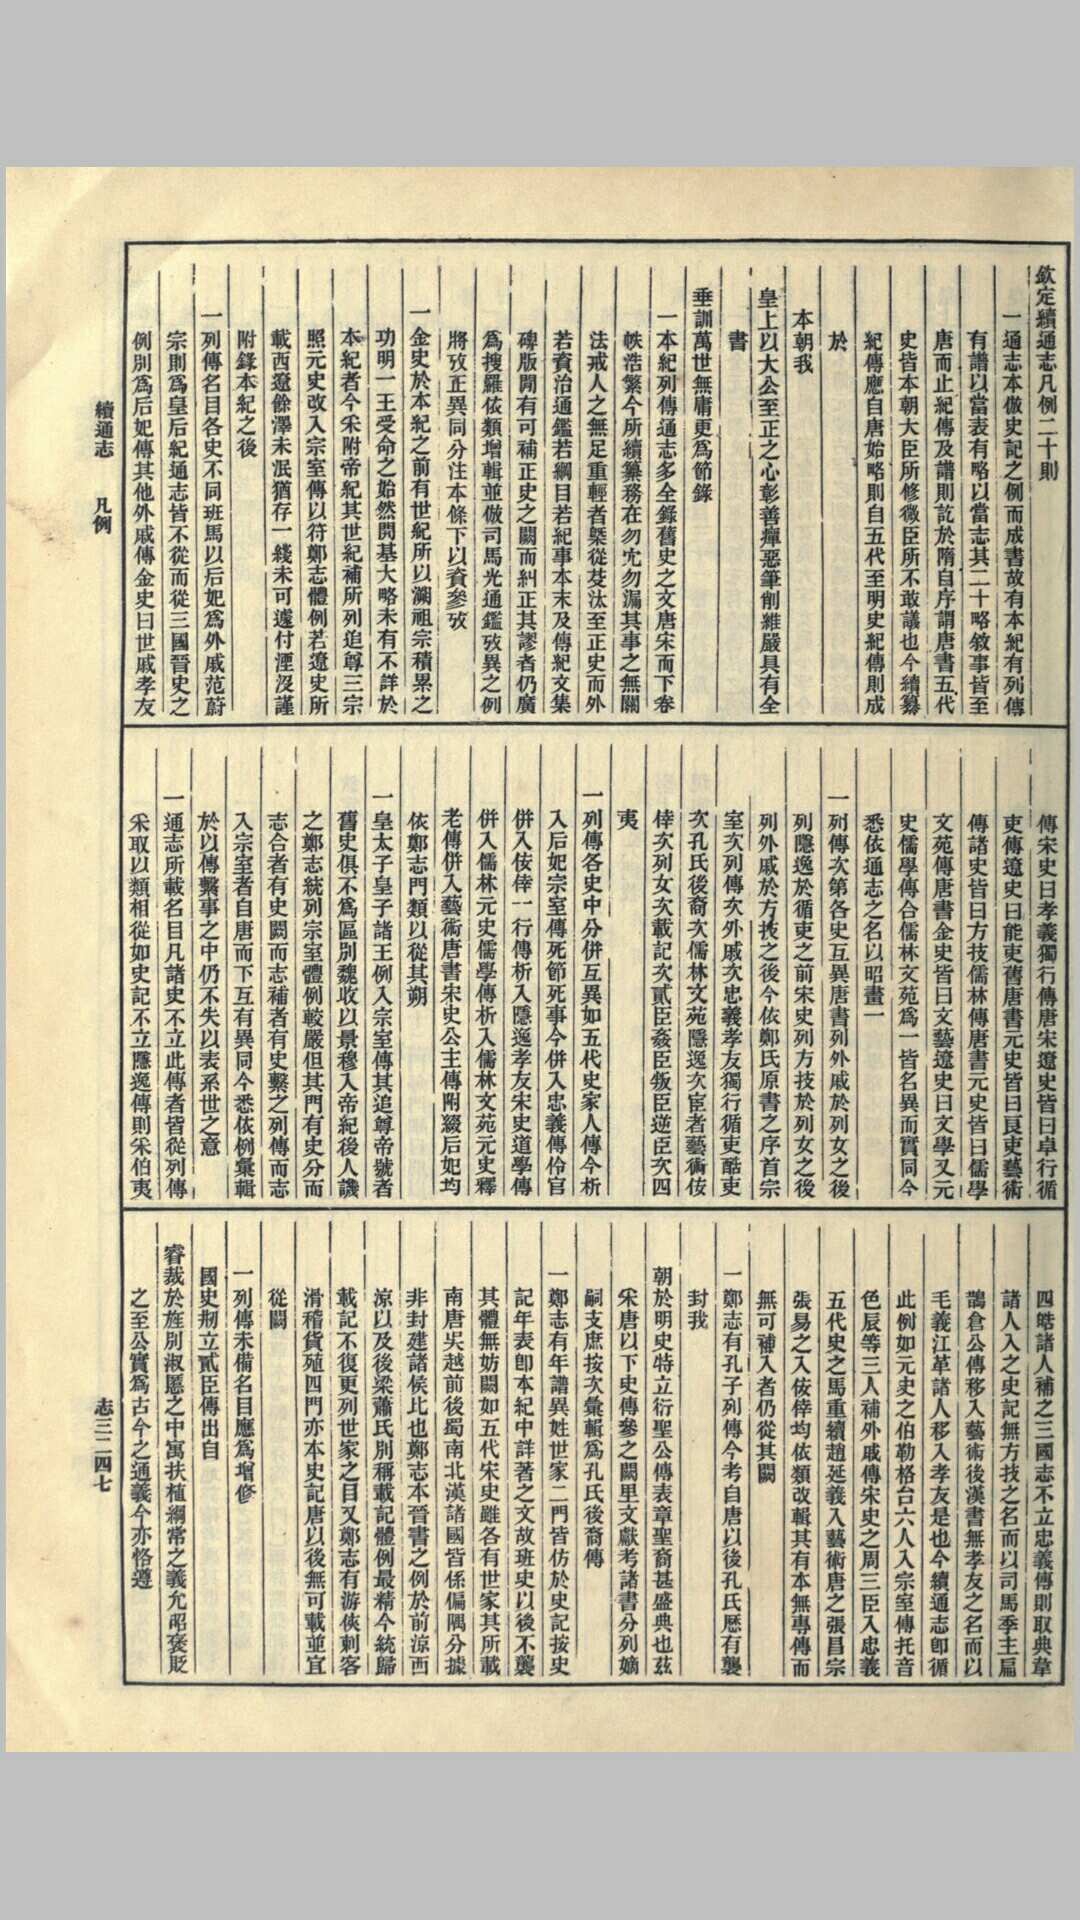 欽定續通志凡例二十則
一通志本倣史記之例而成書故有本紀有列傳
有譜以當表有略以當志其二十略敘事皆至
唐而止紀傳及譜則訖於隋自序謂唐書五代
史皆本朝大臣所修微臣所不敢議也今續纂
紀傳應自唐始略則自五代至明史紀傳則成
於
本朝我
皇上以大公至正之心彰善癉惡筆削維嚴具有全
書
垂訓萬世無庸更爲節錄
一本紀列傳通志多全錄舊史之文唐宋而下卷
帙浩繁今所續纂務在勿宂勿漏其事之無關
法戒人之無足重輕者槩從芟汰至正史而外
若資治通鑑若綱目若紀事本末及傳紀文集
碑版閒有可補正史之闕而糾正其謬者仍廣
爲搜羅依類增輯並倣司馬光通鑑攷異之例
將攷正異同分注本條下以資參攷
一金史於本紀之前有世紀所以溯祖宗積累之
功明一王受命之始然開基大略未有不詳於
本紀者今采附帝紀其世紀補所列追尊三宗
照元史改入宗室傳以符鄭志體例若遼史所
載西遼餘澤未泯猶存一綫未可遽付湮沒謹
附錄本紀之後
一列傳名目各史不同班馬以后妃爲外戚范蔚
宗則爲皇后紀通志皆不從而從三國晉史之
例別爲后妃傳其他外戚傳金史曰世戚孝友
傳宋史曰孝義獨行傳唐宋遼史皆曰卓行循
吏傳遼史曰能吏舊唐書元史皆曰良吏藝術
傳諸史皆曰方技儒林傳唐書元史皆曰儒學
文苑傳唐書金史皆曰文藝遼史曰文學又元
史儒學傳合儒林文苑爲一皆名異而實同今
悉依通志之名以昭畫一
一列傳次第各史互異唐書列外戚於列女之後
列隱逸於循吏之前宋史列方技於列女之後
列外戚於方技之後今依鄭氏原書之序首宗
室次列傳次外戚次忠義孝友獨行循吏酷吏
次孔氏後裔次儒林文苑隱逸次宦者藝術佞
倖次列女次載記次貳臣姦臣叛臣逆臣次四
夷
一列傳各史中分併互異如五代史家人傳今析
入后妃宗室傳死節死事今併入忠義傳伶官
併入佞倖一行傳析入隱逸孝友宋史道學傳
併入儒林元史儒學傳析入儒林文苑元史釋
老傳併入藝術唐書宋史公主傳附綴后妃均
依鄭志門類以從其朔
一皇太子皇子諸王例入宗室傳其追尊帝號者
舊史俱不爲區別魏收以景穆入帝紀後人譏
之鄭志統列宗室體例較嚴但其門有史分而
志合者有史闕而志補者有史繫之列傳而志
入宗室者自唐而下互有異同今悉依例彙輯
於以傳繫事之中仍不失以表系世之意
一通志所載名目凡諸史不立此傳者皆從列傳
采取以類相從如史記不立隱逸傳則采伯夷
四皓諸人補之三國志不立忠義傳則取典韋
諸人入之史記無方技之名而以司馬季主扁
鵲倉公傳移入藝術後漢書無孝友之名而以
毛義江革諸人移入孝友是也今續通志卽循
此例如元史之伯勒格台六人入宗室傳托音
色辰等三人補外戚傳宋史之周三臣入忠義
五代史之馬重績趙延義入藝術唐之張昌宗
張易之入佞倖均依類改輯其有本無專傳而
無可補入者仍從其闕
一鄭志有孔子列傳今考自唐以後孔氏歷有襲
封我
朝於明史特立衍聖公傳表章聖裔甚盛典也茲
采唐以下史傳參之闕里文獻考諸書分列嫡
嗣支庶按次彙輯爲孔氏後裔傳
一鄭志有年譜異姓世家二門皆仿於史記按史
記年表卽本紀中詳著之文故班史以後不襲
其體無妨闕如五代宋史雖各有世家其所載
南唐吳越前後蜀南北漢諸國皆係偏隅分據
非封建諸侯比也鄭志本晉書之例於前涼西
涼以及後梁蕭氏別稱載記體例最精今統歸
載記不復更列世家之目又鄭志有游俠刺客
滑稽貨殖四門亦本史記唐以後無可載並宜
從闕
一列傳未備名目應爲增修
國史刱立貳臣傳出自
睿裁於旌別淑慝之中寓扶植綱常之義允昭褒貶
之至公實爲古今之通義今亦恪遵
續通志 凡例
志三二四七